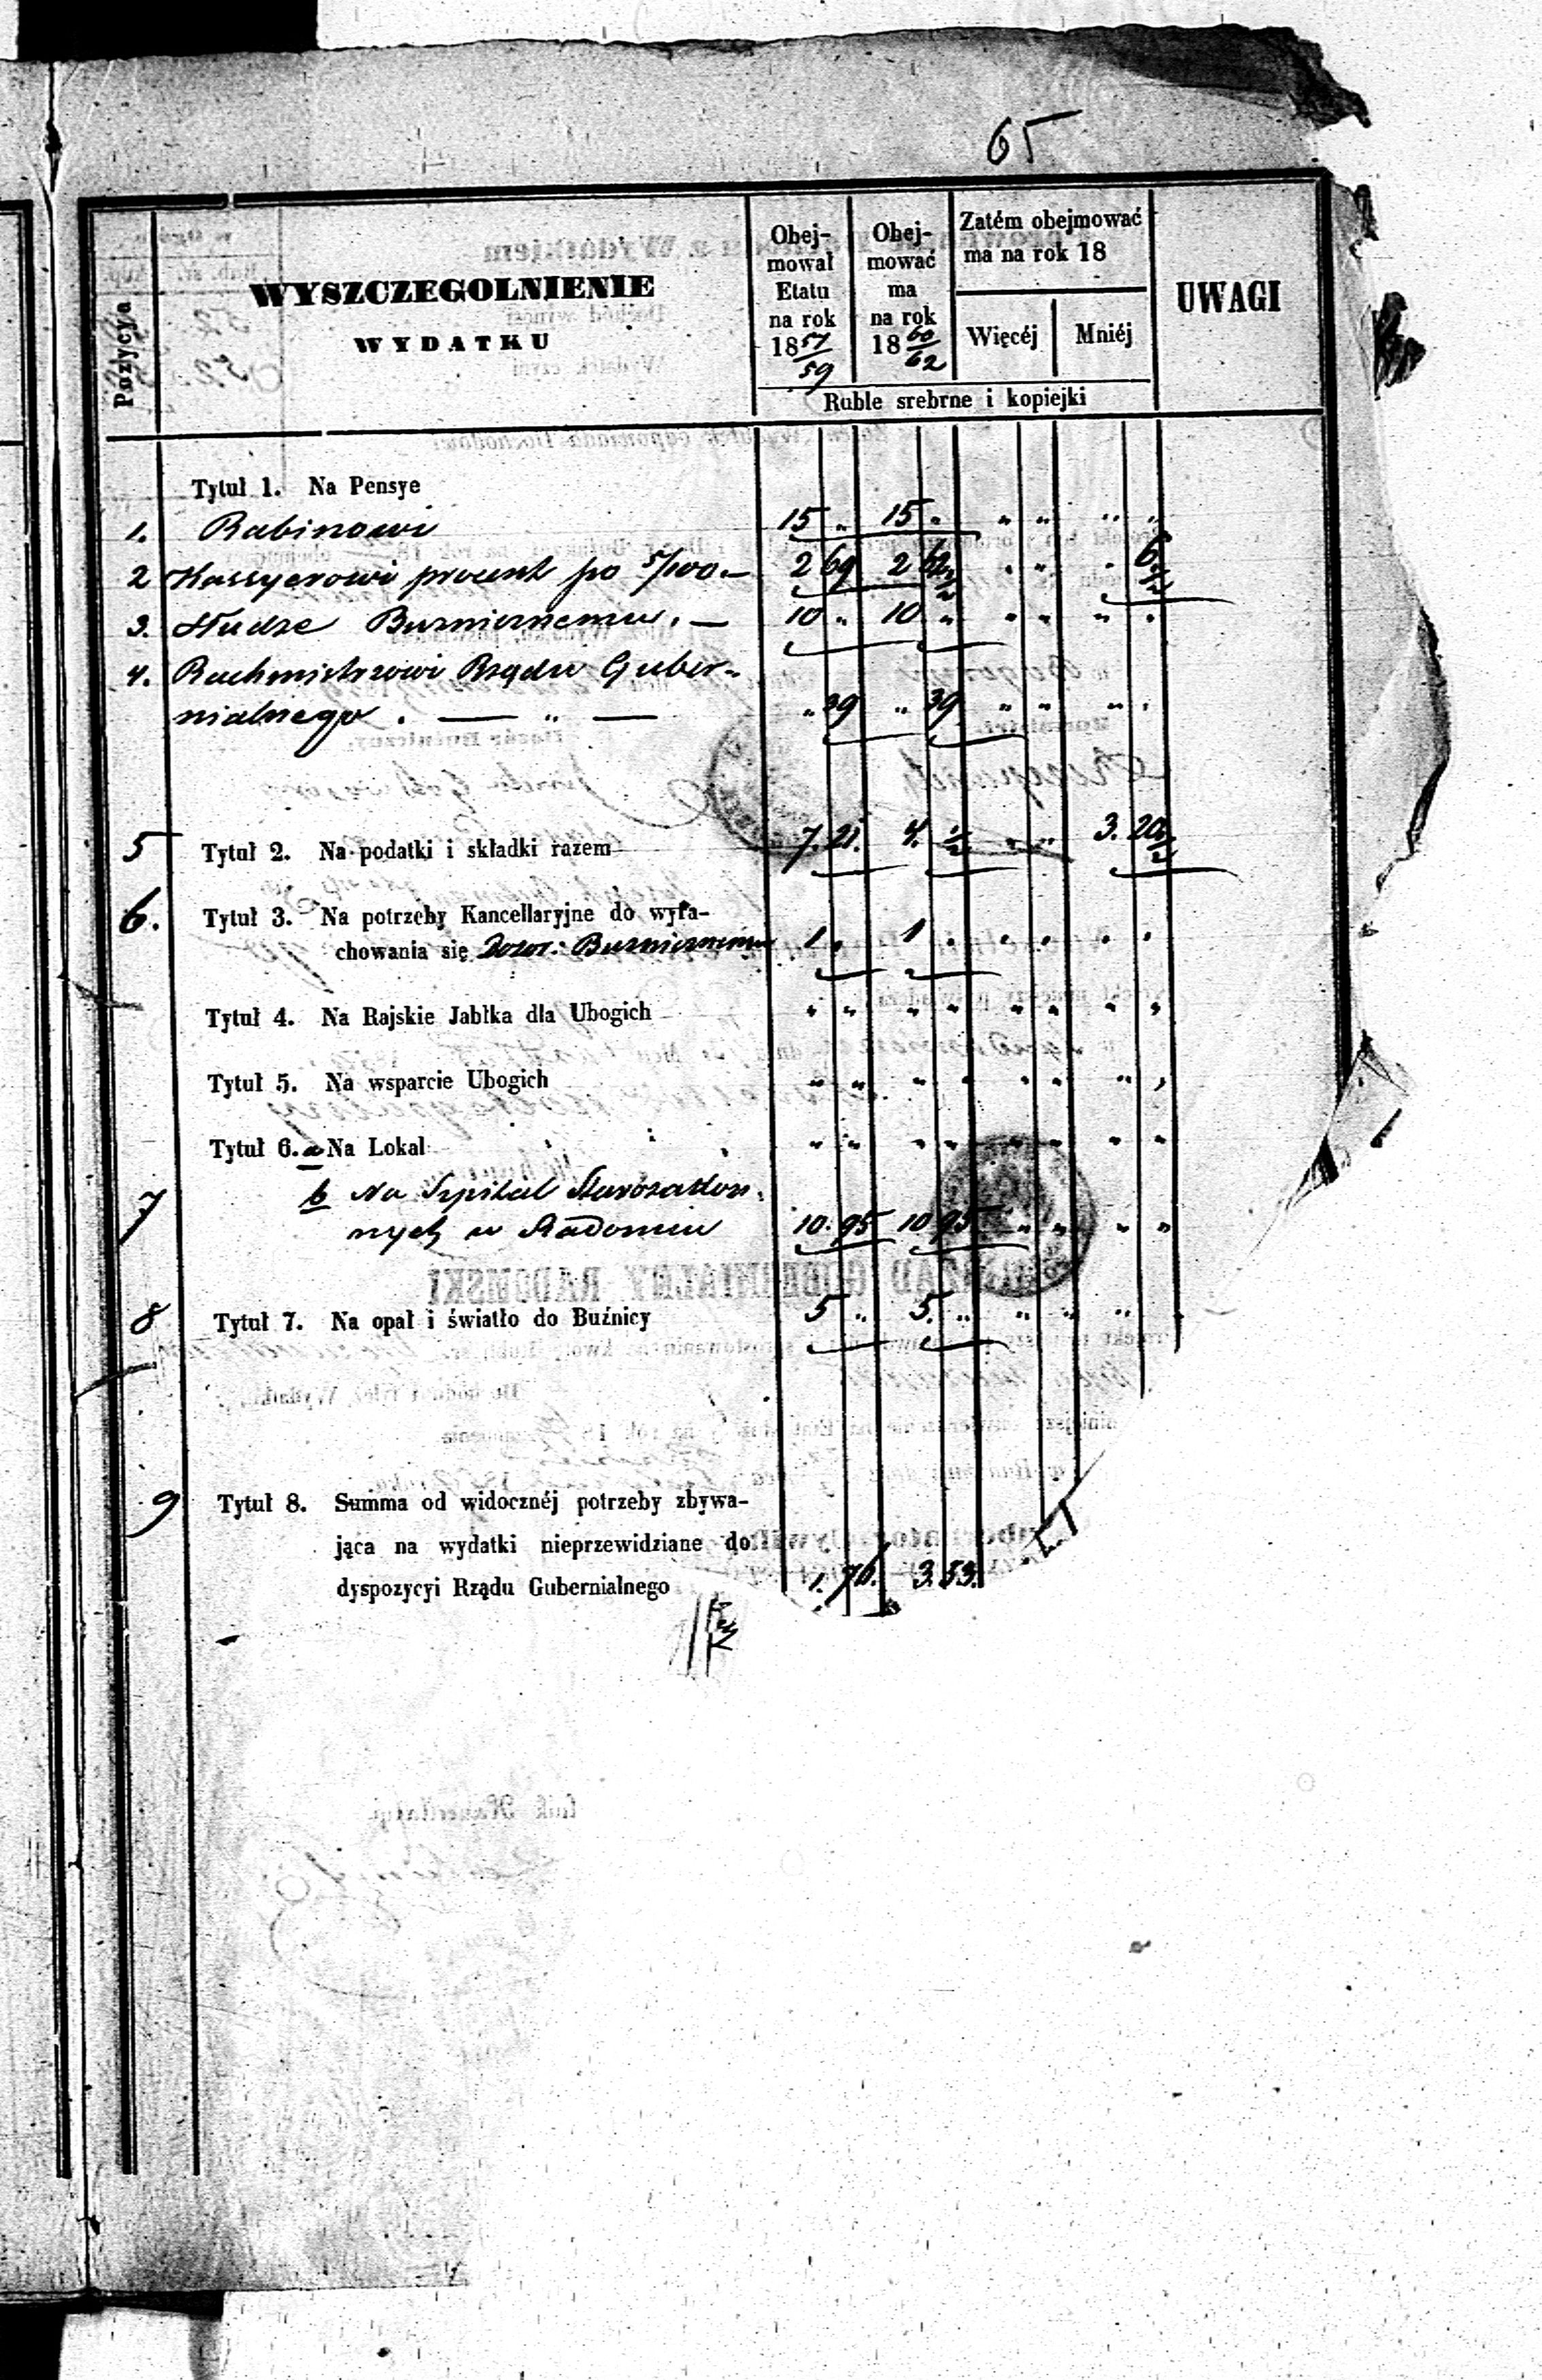 65
Pozycya
WYSZCZEGOLNIENIE
WYDATKU
Obej-
mował
Etatu
na rok
18 57/59
Obej-
mować
ma
na rok
18 60/62
Zatém obejmować
ma na rok 18
Więcéj
Mniéj
UWAGI
Ruble srebrne i kopiejki
Tytuł 1. Na Pensye
1. Rabinowi 15 „ 15 „ „ „ „ „
2 Kassyerowi procent po 5/100 — 2 69 2 62 1/2 „ „ „ 6 1/2
3. Słudze Bużnicznemu . — 10 „ 10 „ „ „ „ „
4. Rachmistrzowi Rządu Guber-
nialnego . — „ — „ 39 „ 39 „ „ „ „
5 Tytuł 2. Na podatki i składki razem 7. 21. 4. 1/2 „ „ 3. 20 1/2
6. Tytuł 3. Na potrzeby Kancellaryjne do wyra-
chowania się Dozor: Bużnicznemu 1 „ 1 „ „ „ „ „
Tytuł 4. Na Rajskie Jabłka dla Ubogich „ „ „ „ „ „ „ „
Tytuł 5. Na wsparcie Ubogich „ „ „ „ „ „ „ „
Tytuł 6. a Na Lokal „ „ „ „ „ „
b Na Szpital Starozakon-
7 nych w Radomiu 10. 95 10 95 „ „ „ „
8 Tytuł 7. Na opał i światło do Buźnicy 5 „ 5. „ „ „ „
9 Tytuł 8. Summa od widocznéj potrzeby zbywa-
jąca na wydatki nieprzewidziane do
dyspozycyi Rządu Gubernialnego 1. 70. 3. 53.